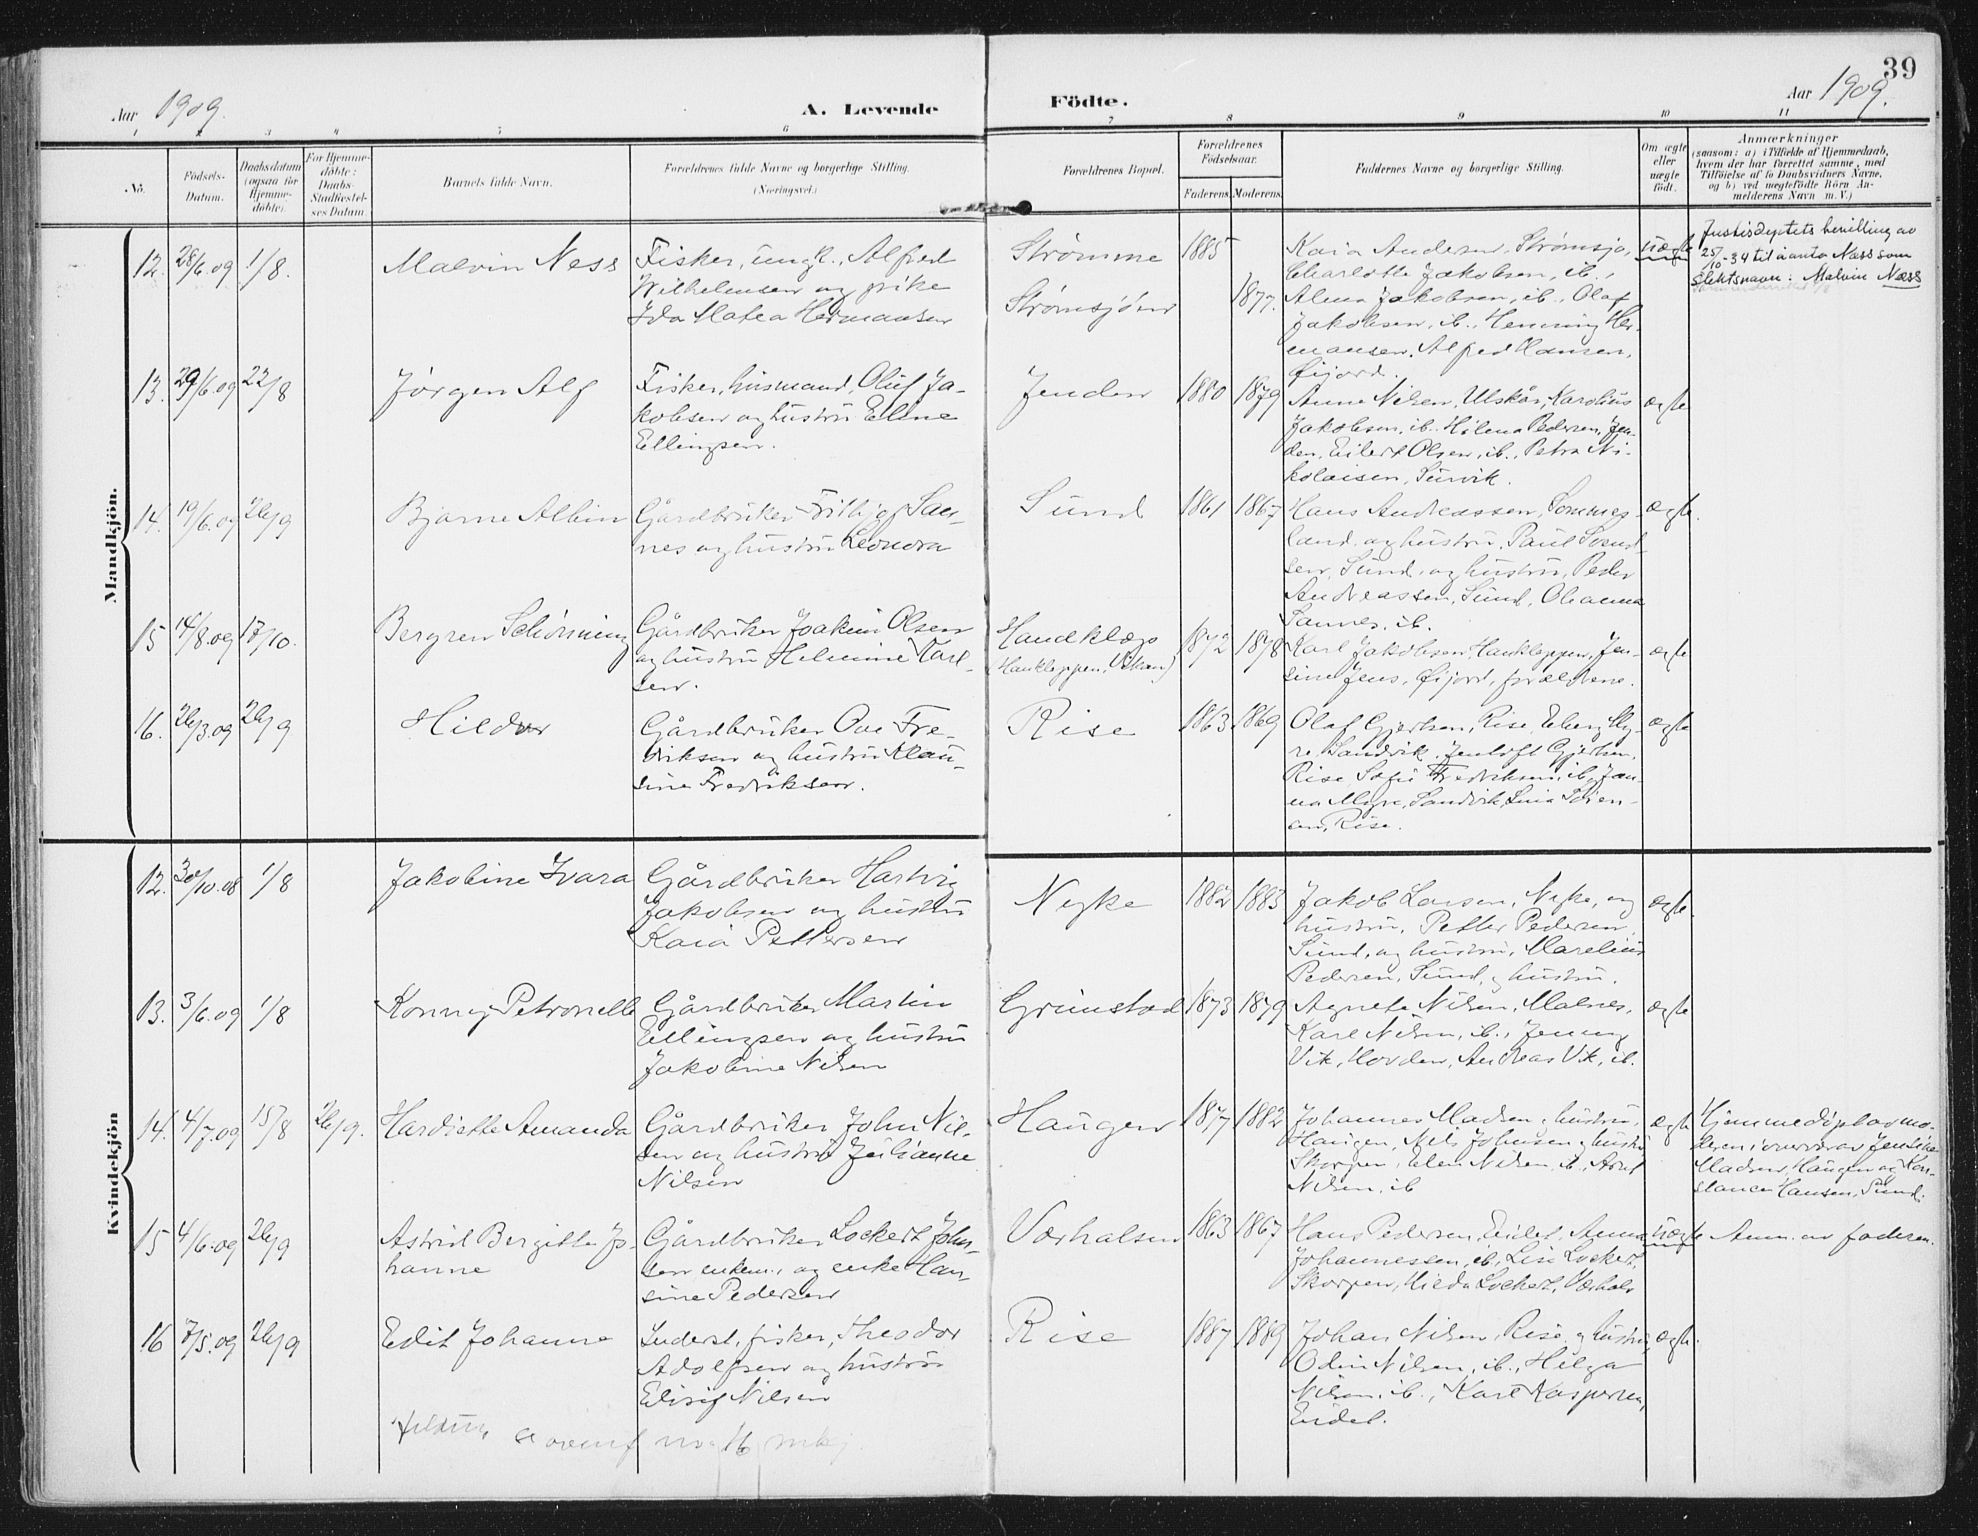 39
Aar 1909.
A. Levende
Födte.
Aar 1909.
1 2 3 4 5 6 7 8 9 10 11
No.
Födsels-
Datum.
Daabsdatum
(ogsaa for
Hjemme-
döbte).
For Hjemme-
döbte:
Daabs-
Stadfæstel-
ses Datum
Barnets fulde Navn.
Forældrenes fulde Navne og borgerlige Stilling.
(Næringsvei.)
Forældrenes Bopæl.
Forældrenes
Födselsaar.
Faderens
Moderens
Faddernes Navne og borgerlige Stilling.
Om ægte
eller
uægte
födt.
Anmærkninger
(saasom: a) i Tilfælde af Hjemmedaab,
hvem der har forrettet samme, med
Tilföielse af to Daabsvidners Navne,
og b) ved uægtefödte Börn An-
melderens Navn m. V.)
Mandkjön.
12. 28/6.09 1/8. Malvin Ness
Fisker, ungk., Alfred
Wilhelmsen og pike
Ida Matea Hermansen
Strømme 1885
Strømsjøen 1877.
Kaia Andersen, Strømsjø,
Charlotte Jakobsen, ib.,
Alma Jakobsen, ib., Olaf
Jakobsen, ib., Henning Her-
mansen, Alfred Hansen,
Øijord.
uægte
Justisdeptets bevilling av
25/10-34 til å anta Næss som
slektsnavn: Malvin Næss
13. 29/6.09 22/8 Jørgen Alf
Fisker, husmand, Oluf Ja-
kobsen og hustru Eline
Ellingsen.
Jenden 1880 1879
Anne Nilsen, Ulskår, Karolius
Jakobsen, ib. Helena Pedersen, Jen-
den, Eilert Olsen, ib., Petra Ni-
kolaisen, Survik.
ægte
14. 19/6.09 26/9 Bjarne Albin
Gårdbruker Frithjof San-
nes og hustru Leonora
Sund 1861 1867
Hans Andreassen, Sommes-
land og hustru, Paul Svend-
sen, Sund, og hustru, Peder
Andreassen, Sund, Oleanna
Sannes, ib.
ægte.
15 14/8.09 17/10. Bergren Schönning
Gårdbruker Joakim Olsen
og hustru Helmine Karl-
sen.
Handklæp
(Hankleppen, Vikan)
1872 1878
Karl Jakobsen, Hankleppen, Jen-
sine Jens, Øijord, forældrene.
ægte
16. 26/3.09 26/9 Hildur
Gårdbruker Ove Fre-
driksen og hustru Klau-
sine Fredriksen.
Rise 1863 1869
Olaf Gjertsen, Rise, Eberg My-
re, Sandvik, Jentoft Gjertsen,
Rise Sofie Fredriksen, ib, Jan-
na Myre, Sandvik,
Rise.
ægte
Kvindekjön
12. 30/10.08 1/8 Jakobine Ivara
Gårdbruker Hartvig
Jakobsen og hustru
Kaia Pettersen
Nyke 1882 1883
Jakob Larsen, Nyke, og
hustru, Petter Pedersen,
Sund, og hustru, Marelius
Pedersen, Sund, og hustru.
ægte.
13. 3/6.09 1/8 Konny Petronelle
Gårdbruker Martin
Ellingsen og hustru
Jakobine Nilsen
Grimstad 1873 1879
Agnete Nilsen, Malnes,
Karl Nilsen, ib., Jenny
Vik, Hovden, Andreas Vik, ib.
ægte
14. 4/7.09 15/8 26/9. Hardiette Amanda
Gårdbruker John Nil-
sen og hustru Julianne
Nilsen
Haugen 1877 1882
Johannes Madsen og hustru,
Haugen, Nels Johnsen og hustru
Skorpen, Elen Nilsen, ib, Arnt
Nilsen, ib
ægte
Hjemmedøpt av mo-
deren i overvær av Jensine
Madsen, Haugen og Kon-
stance Hansen, Sund.
15 4/6.09 26/9 Astrid Bergitte Jo-
hanne
Gårdbruker Lockert John-
sen enkem., og enke Han-
sine Pedersen
Vorhalsen 1863 1867
Hans Pedersen, Eidet, Anna
Johannessen, ib, Lise Lockert,
Skorpen, Hilda Lockert, Værhals
uægte
Anm. av faderen.
16 7/5.09 26/9 Edit Johanne
Inderst, fisker, Theodor
Adolfsen og hustru
Elisif Nilsen
Rise 1887 1889
Johan Nilsen, Rise, og hustru,
Odin Nilsen, ib., Helga
Nilsen, ib., Karl Kaspersen,
Eidet.
ægte.
Hildur, se ovenf no 16 mkj.